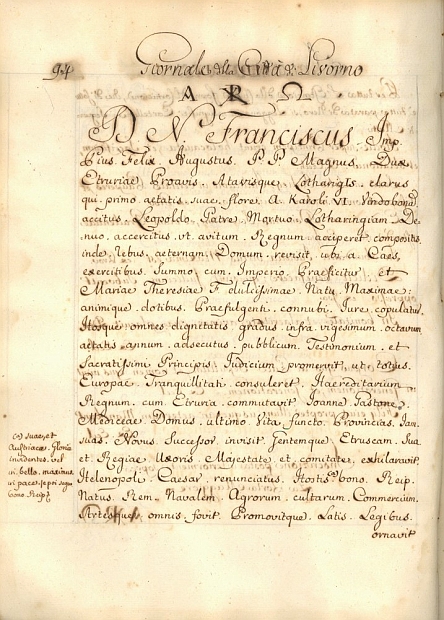 94 Giornale della Città di Livorno
A ☧ Ω
D. N. Franciscus. Imp.
Pius. Felix. Augustus. P. P. Magnus. Dux
Etruriae Proavis. Atavisque Lotharigis. clarus
qui primo aetatis suae flore. A. Karoli VI. Vindobonam
accitus. Leopoldo. Patre. Mortuo. Lotharingiam. De-
nuo. accercitus. vt. avitum. Regnum. acciperet. compositis
inde. rebus. aeternam. Domum. revisit. ubi. a. Caes.
exercitibus. Summo. cum. Imperio. Praeficitur. et
Mariae Theresiae F. dulcissimae. Natu. Maximae.
animique. dotibus. Praefulgenti. connubi. Iure. copulatus
Itosque omnes. dignitatis gradus. infra. vigesimum. octavum
aetatis annum. adsecutus. pubblicum. Testimonium. et
Sacratissimi Principis. Iudicium. promervit. ut. totius.
Europae Tranquillitati consuleret. Haereditarium
Regnum. cum Etruria commutavit Ioanne Gastone.
Mediceae Domus. ultimo. Vita functo. Provincias. Iam.
suas. Novus Successor. invisit. Gentemque. Etruscam. Sua
et. Regiae Uxoris Majestate. et. comitate. exhilaravit
Itelenopoli. Caesar. renunciatus. Itotis bono. Reip.
Natus. Rem. Navalem. Agrorum. cultarum. Commercium.
Artesque. omnis. fovit. Promovitque. Latis. Legibus.
ornavit
suae. et
Austriacae. Gloriae
invidentes. vel
in. bello. maximus
bono. Reip.